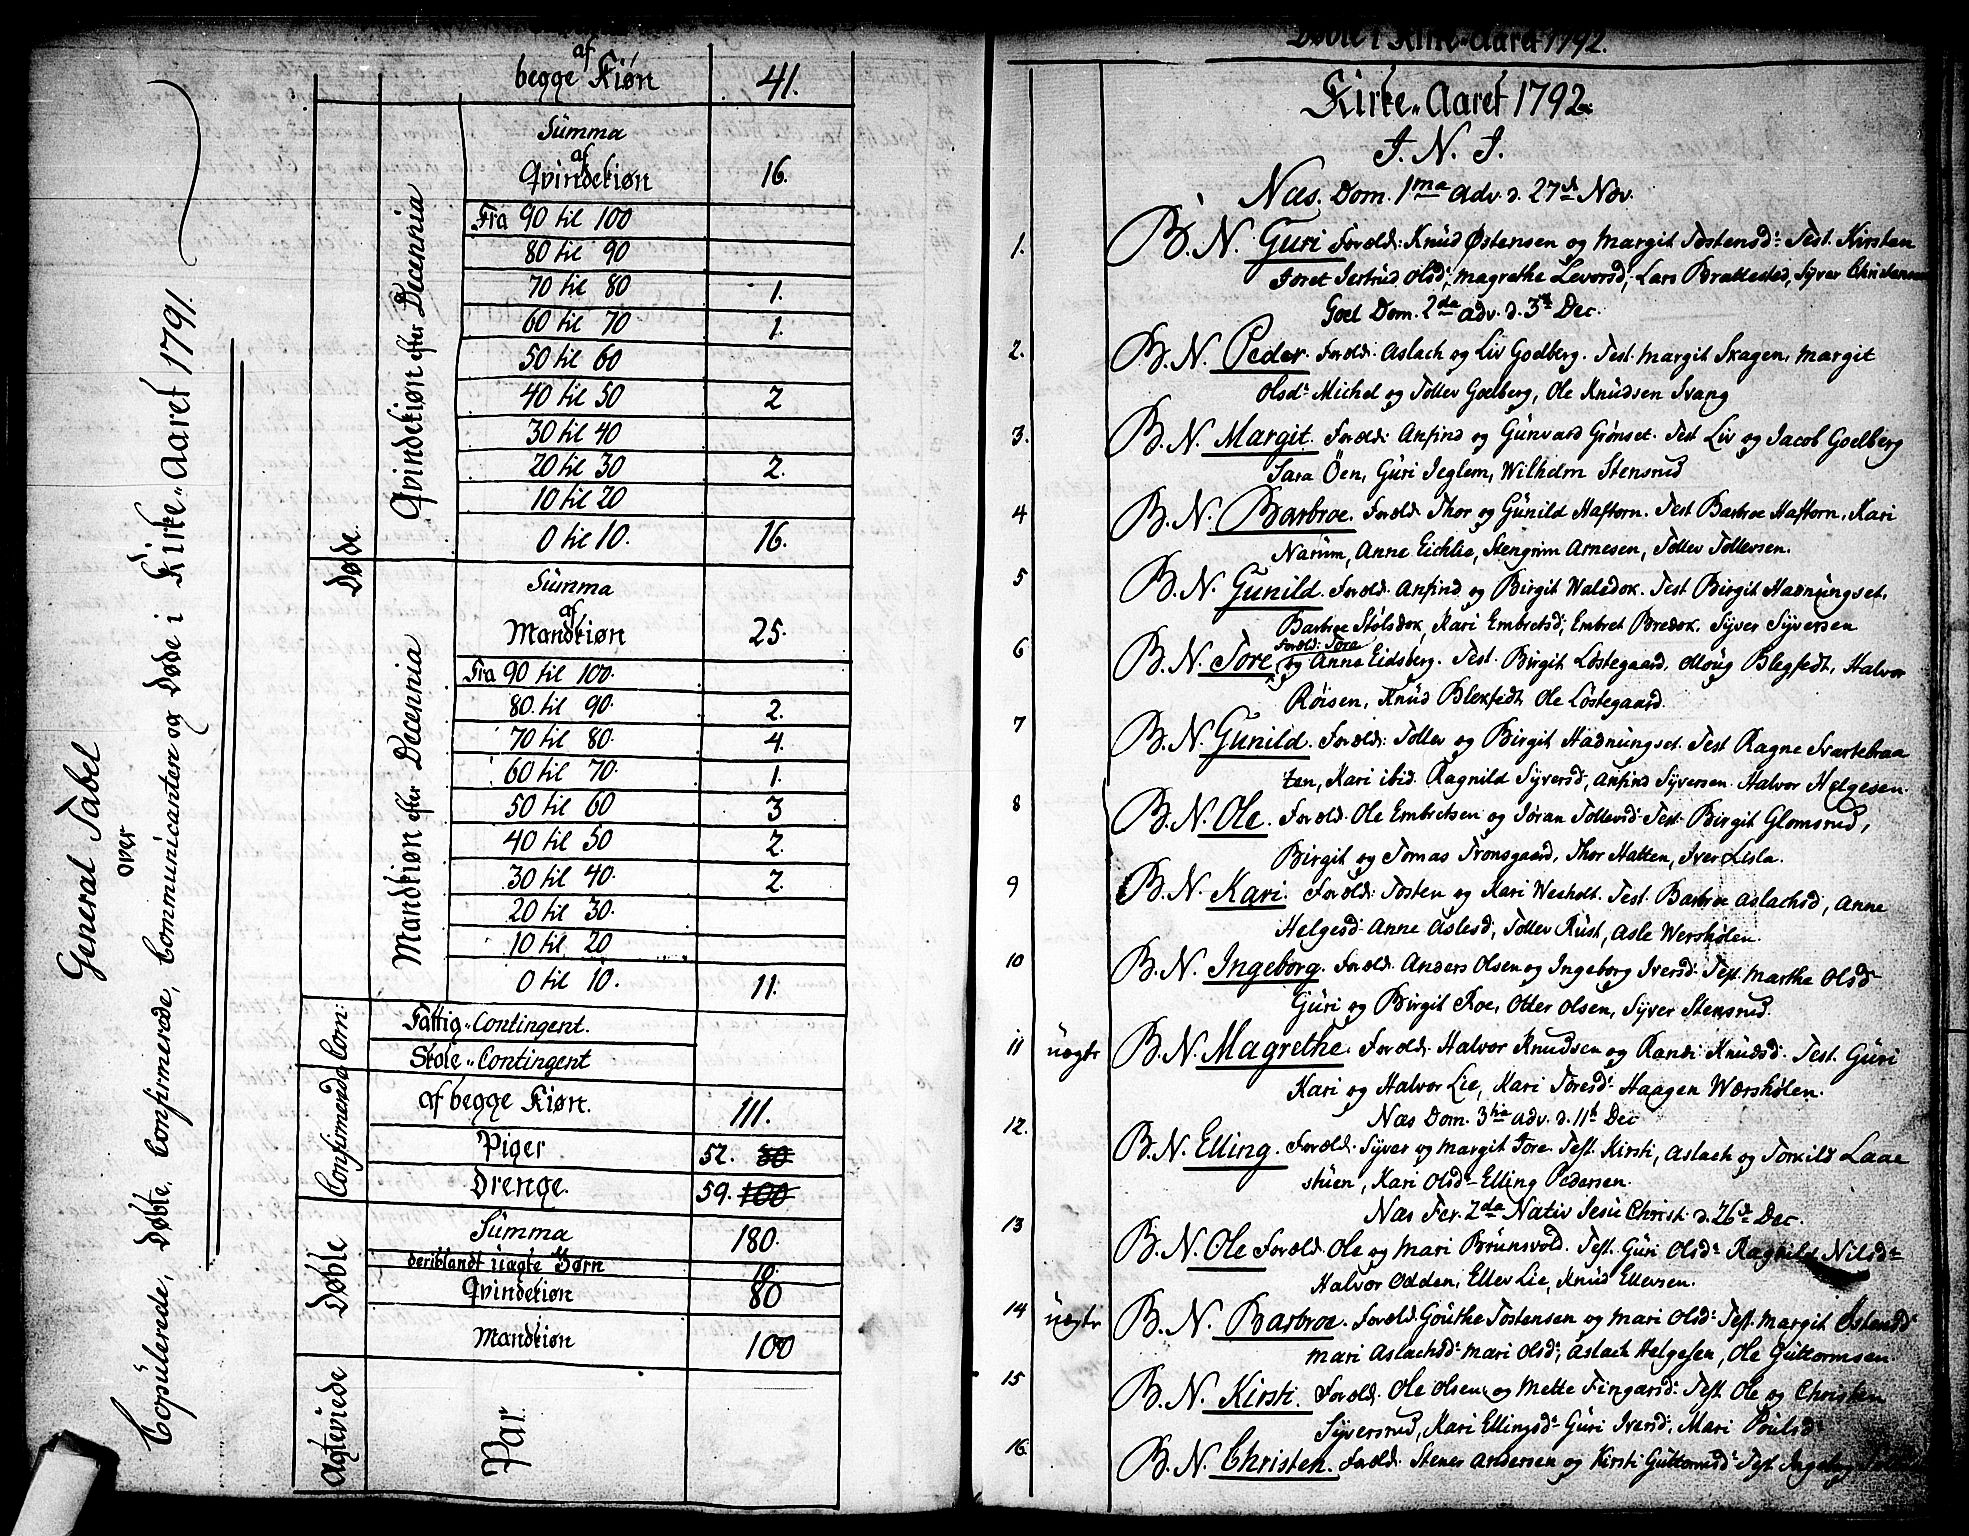 General Tabel
over
Copülerede, Døbte, Confirmerede, Communicantere og Døde i Kirke-Aaret 1791.
Døde
af
begge Kiøn 41.
Qvindekiøn efter Decennia
Sümma
af
Qvindekiøn 16.
Fra 90 til 100
80 til 90
70 til 80 1.
60 til 70 1.
50 til 60
40 til 50 2
30 til 40
20 til 30 2.
10 til 20
0 til 10. 16.
Mandkiøn efter Decennia
Sümma
af
Mandkiøn 25.
Fra 90 til 100.
80 til 90. 2.
70 til 80. 4.
60 til 70. 1.
50 til 60 3
40 til 50 2.
30 til 40. 2.
20 til 30.
10 til 20
0 til 10. 11.
Con:
Fattig-Contingent.
Skole-Contingent
Confirmerede
af begge Kiøn. 111.
Piger 52. 80
Drenge. 59. 100
Døbte
Sümma 180.
deriblandt üægte Børn 10.
Qvindekiøn 80
Mandkiøn 100
Ægteviede
Par.
Døbte i Kirke-Aaret 1792.
Kirke-Aaret 1792.
I. N. J.
Næs. Dom. 1ma adv. d. 27d Nov.
1. B. N. Guri Foræld: Knüd Østensen og Margit Tostensd: Test. Kirsten
Toret Jertrud Olsd: Magrethe Levorsd, Lars Brattested, Syver Christensen
Goel Dom. 2da adv. d. 3d Dec.
2. B. N. Peder. Foræld: Aslach og Liv Godberg. Test. Margit Skagen, Margit
Olsd: Michel og Tollev Goelberg, Ole Knüdsen Svang
3. B. N. Margit. Foræld: Anfind og Günvard Grønset. Test Liv og Jacob Goelberg
Sara Öen, Güri Jeglem, Wilhelm Stensrud
4 B. N. Barbroe. Foræld: Thor og Günild Haftorn. Test Barbroe Haftorn, Kari
Narüm, Anne Eichlie, Stengrim Arnesen, Tollev Tollevsen.
5 B. N. Gunild. Foræld. Anfind og Birgit Walsdok. Test Birgit Hadnüngset.
Barbroe Stølsdok, Kari Embretsd, Embret Bredok. Syver Syversen
Foræld: Tore
6 B. N. Tore og Anne Eidsberg. Test. Birgit Løstegaard, Olloüg Blegfedt, Halvor
Røisen, Knüd Blexfedt, Ole Løstegaard.
7 B. N. Gunild. Foræld: Tollev og Birgit Hadnüngset. Test Ragne Svartebraa
ten, Kari ibid. Ragnild Syversd, Anfind Syversen. Halvor Helgesen.
8 B. N. Ole. Foræld. Ole Embretsen og Jøran Tollevsd: Test. Birgit Glomsrud,
Birgit og Tomas Tronsgaard, Thor Hatten, Iver Lisla.
9 B. N. Kari. Foræld: Tosten og Kari Wesholt. Test. Barbroe Aslachsd, Anne
Helgesd: Anne Aslesd, Tollev Rüst, Asle Wersholen.
10 B. N. Ingeborg. Foræld. Anders Olsen og Ingeborg Iversd: Test. Marthe Olsd:
Güri og Birgit Roe, Otter Olsen, Syver Stensrud.
11 üægte B. N. Magrethe. Foræld: Halvor Knudsen og Randi Knüdsd. Test. Güri
Kari og Halvor Lie, Kari Toresd: Haagen Wærshølen.
Næs Dom. 3tia adv. d. 11t Dec
12. B. N. Elling. Foræld: Syver og Margit Tore. Test. Kirsti, Aslach og Torkild Laae
stüen, Kari Olsd: Elling Pedersen.
Næs Fer. 2da Nativ Jesü Christ. d. 26d Dec.
13 B. N. Ole Foræld. Ole og Mari Brünsvold. Test. Güri Olsd: Ragnild Nilsd:
Halvor Odden, Ellev Lie, Knüd Ellevsen.
14 üægte B. N. Barbroe. Foræld. Goüthe Tostensen og Mari Olsd: Test. Margit Østensd:
Mari Aslachsd: Mari Olsd; Aslach Helgesen, Ole Güttormsen.
15 B. N. Kirsti. Foræld. Ole Olsen og Mette Fingarsd: Test. Ole og Christen
Syversrud, Kari Ellingsd: Güri Iversd. Mari Poülsd:
16. B. N. Christen. Foræld: Stener Andersen og Kirsti Güttormsd: Test Ingeborg